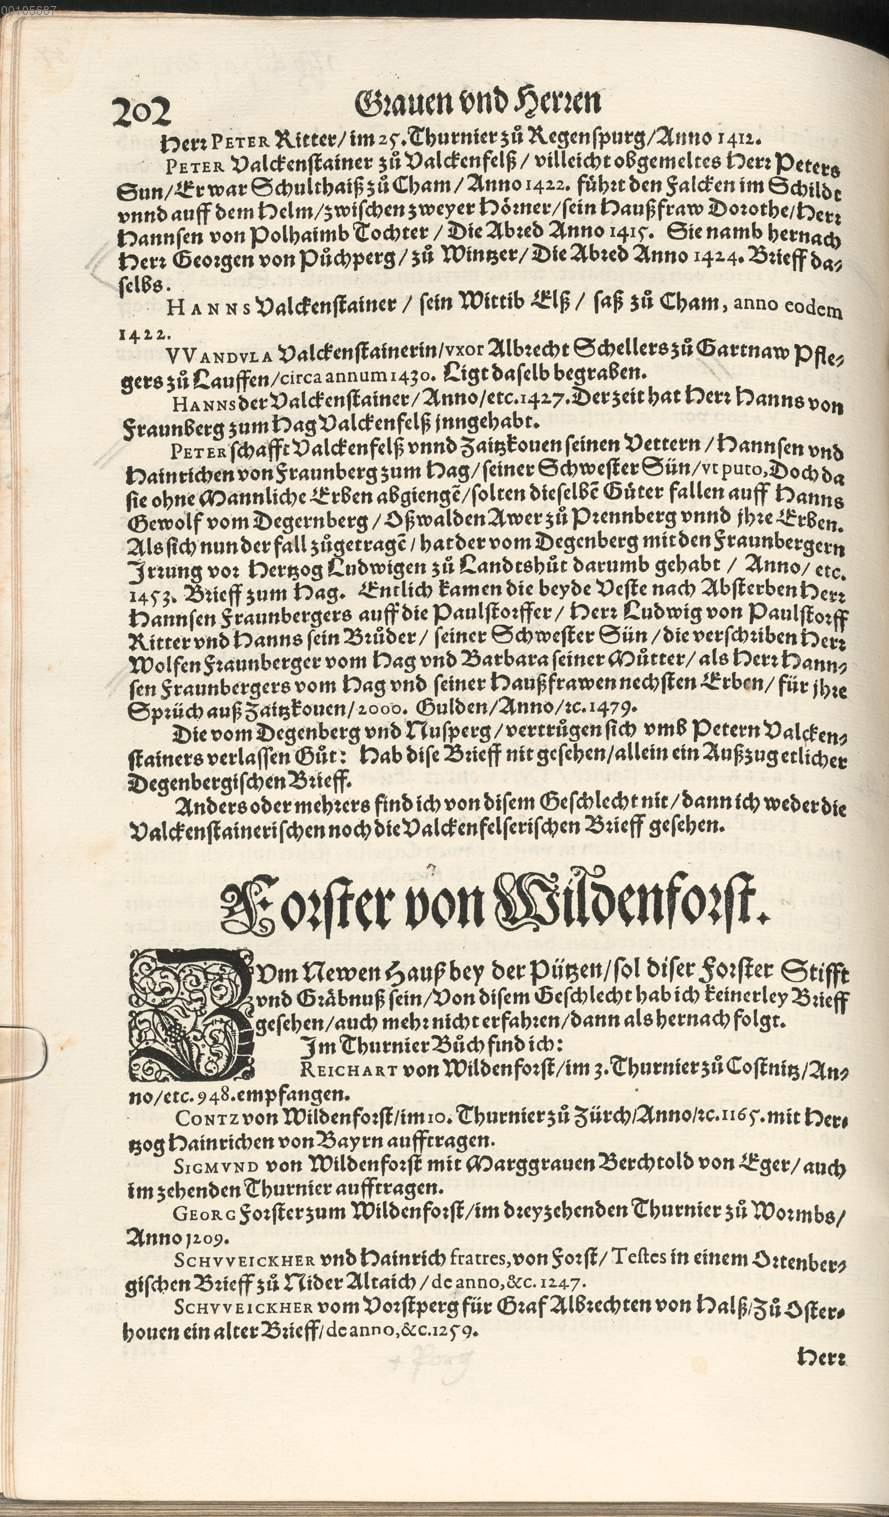 00105687
202 Grauen vnd Herren
Herr PETER Ritter/im 25. Thurnier zů Regenspurg/Anno 1412.
PETER Valckenstainer zů Valckenfelß/ villeicht obgemeltes Herr Peters
Sun/Er war Schulthaiß zů Cham/Anno 1422. führt den Falcken im Schildt
vnnd auff dem Helm/zwischen zweyer Hörner/sein Haußfraw Dorothe/Herr
Hannsen von Polhaimb Tochter/ Die Abred Anno 1415. Sie namb hernach
Herr Georgen von Půchperg/ zů Wintzer/Die Abred Anno 1424. Brieff da-
selbs.
HANNS Valckenstainer / sein Wittib Elß/ saß zů Cham, anno eodem
1422.
VVANDVLA Valckenstainerin/vxor Albrecht Schellers zů Gartnaw Pfle-
gers zů Lauffen/circa annum 1430. Ligt daselb begraben.
HANNS der Valckenstainer/Anno/etc. 1427. Der zeit hat Herr Hanns von
Fraunberg zum Hag Valckenfelß jnngehabt.
PETER schafft Valckenfelß vnnd Zaitzkouen seinen Vettern/Hannsen vnd
Hainrichen von Fraunberg zum Hag/seiner Schwester Sün/vt puto, Doch da
sie ohne Mannliche Erben abgiengē/solten dieselbē Güter fallen auff Hanns
Gewolf vom Degernberg/Oßwalden Awer zů Prennberg vnnd jhre Erben.
Als sich nun der fall zůgetragē/ hat der vom Degenberg mit den Fraunbergern
Irrung vor Hertzog Ludwigen zů Landtshůt darumb gehabt / Anno/ etc.
1453. Brieff zum Hag. Entlich kamen die beyde Veste nach Absterben Herr
Hannsen Fraunbergers auff die Paulstorffer/ Herr Ludwig von Paulstorff
Ritter vnd Hanns sein Brůder/ seiner Schwester Sün/die verschriben Herr
Wolfen Fraunberger vom Hag vnd Barbara seiner Můtter/als Herr Hann-
sen Fraunbergers vom Hag vnd seiner Haußfrawen nechsten Erben/ für jhre
Sprüch auß Zaitzkouen/2000. Gulden/Anno/ꝛc. 1479.
Die vom Degenberg vnd Nusperg/vertrůgen sich vmb Petern Valcken-
stainers verlassen Gůt: Hab dise Brieff nit gesehen/allein ein Außzug etlicher
Degenbergischen Brieff.
Anders oder mehrers find ich von disem Geschlecht nit/dann ich weder die
Valckenstainerischen noch die Valckenfelserischen Brieff gesehen.
Forster von Wildenforst.
ZVm Newen Hauß bey der Pützen/sol diser Forster Stifft
vnd Gräbnuß sein/Von disem Geschlecht hab ich keinerley Brieff
gesehen/auch mehr nicht erfahren/dann als hernach folgt.
Im Thurnier Bůch find ich:
REICHART von Wildenforst/im 3. Thurnier zů Costnitz/An-
no/etc. 948. empfangen.
CONTZ von Wildenforst/im 10. Thurnier zů Zürch/Anno/ꝛc. 1165. mit Her-
tzog Hainrichen von Bayrn aufftragen.
SIGMVND von Wildenforst mit Marggrauen Berchtold von Eger/auch
im zehenden Thurnier aufftragen.
GEORG Forster zum Wildenforst/im dreyzehenden Thurnier zů Wormbs/
Anno 1209.
SCHVVEICKHER vnd Hainrich fratres, von Forst/ Testes in einem Ortenber-
gischen Brieff zů Nider Altaich/de anno, &c. 1247.
SCHVVEICKHER vom Vorstperg für Graf Albrechten von Halß/Zů Oster-
houen ein alter Brieff/de anno, &c. 1259.
Herr